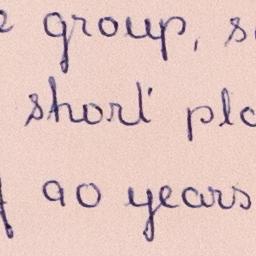 group,
short
90 years